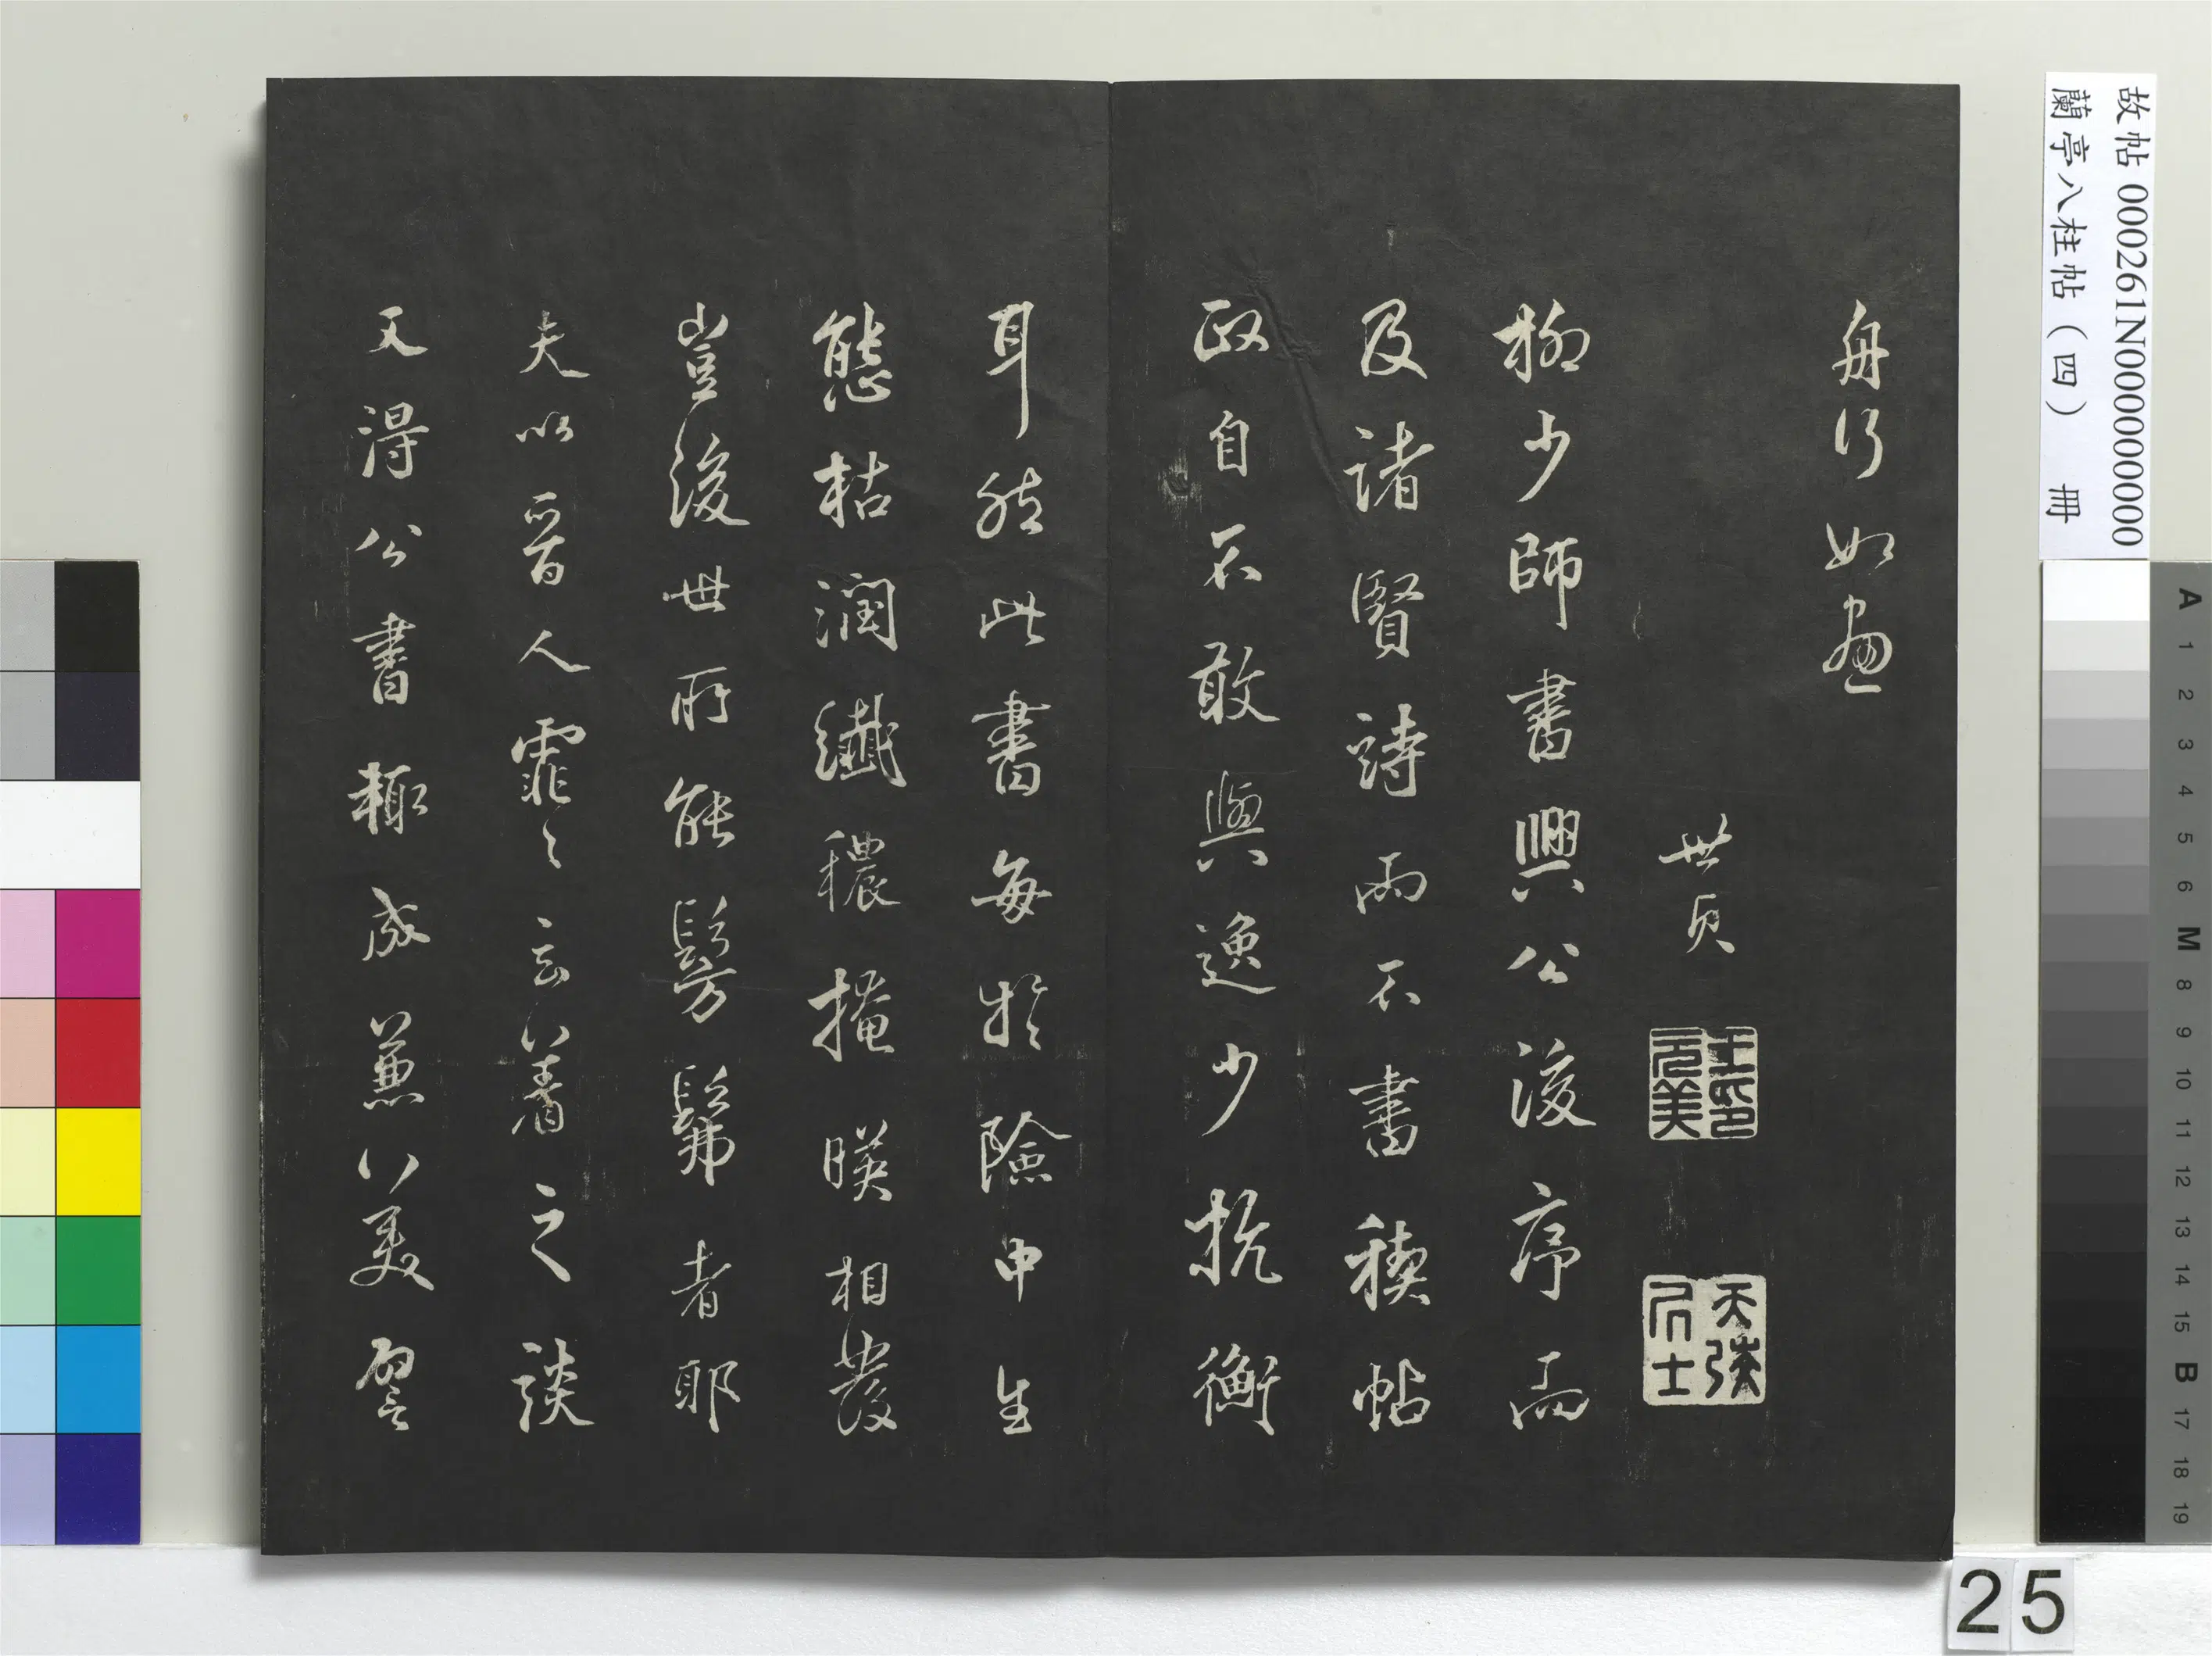 舟行如畫
世貞
王印元美
天弢居士
柳少師書興公後序而
及諸賢詩而不書禊帖
政自不敢與逸少抗衡
耳然此書每於險中生
態枯潤纖穠掩暎相發
豈後世所能髣髴者耶
夫以晉人霏〻玄著之談
又得公書輙成兼美譬
故帖 000261N000000000
蘭亭八柱帖（四） 冊
A 1 2 3 4 5 6 M 8 9 10 11 12 13 14 15 B 17 18 19
25